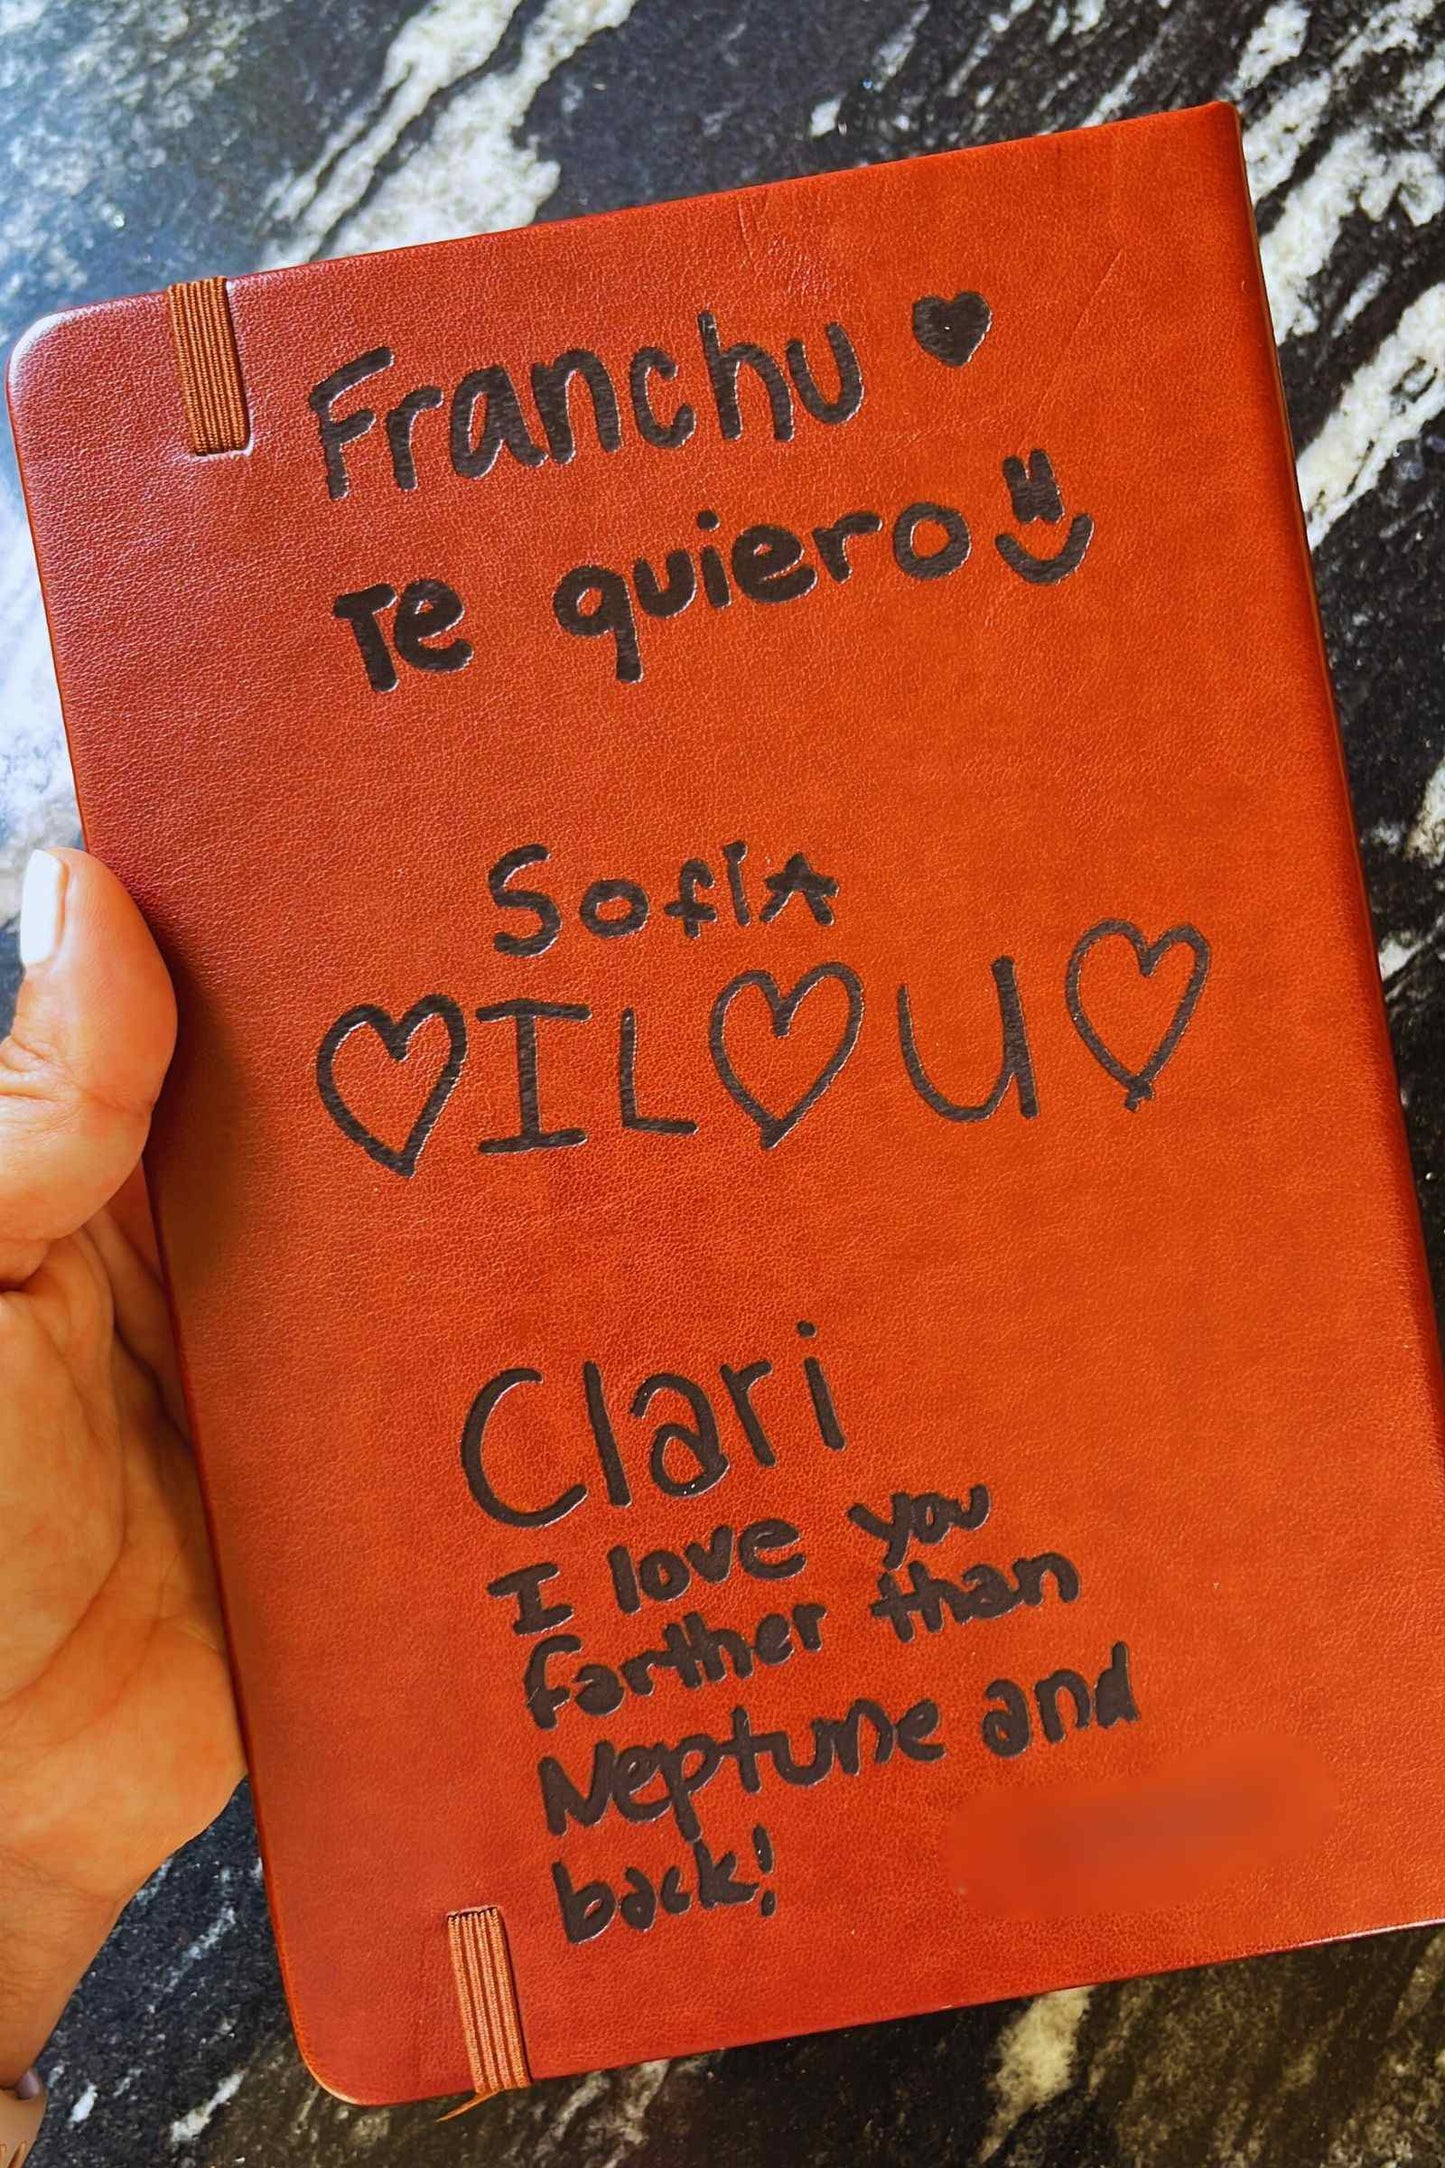 Franchu ♥
Te quiero
Sofía
♡ I L ♡ U ♡
Clari
I love you
farther than
Neptune and
back!